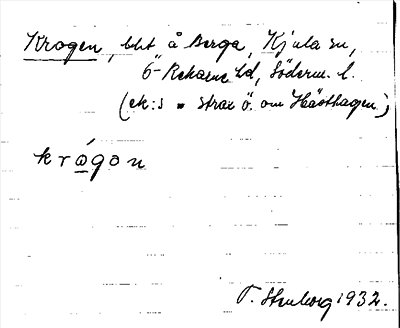 Krogen, lht å Berga, Kjula sn,
Ö-Rekarne hd, Söderm. l.
(ek:s = strax ö. om Hästhagen)
krógon
T. Stenborg 1932.